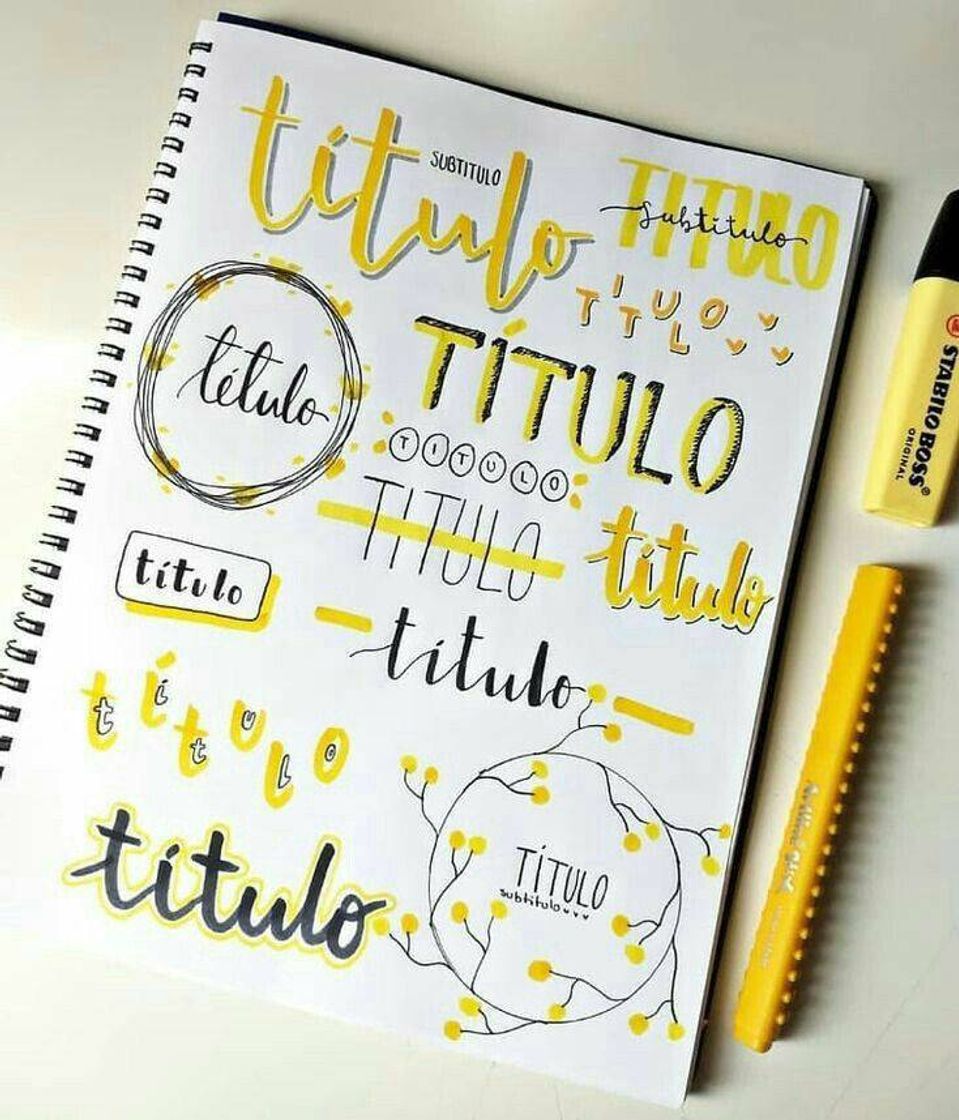 título
SUBTITULO
TITULO
subtitulo
TÍTULO
TÍTULO
título
TITULO
TITULO
título
título
título
título
título
TÍTULO
subtitulo
STABILO BOSS®
ORIGINAL